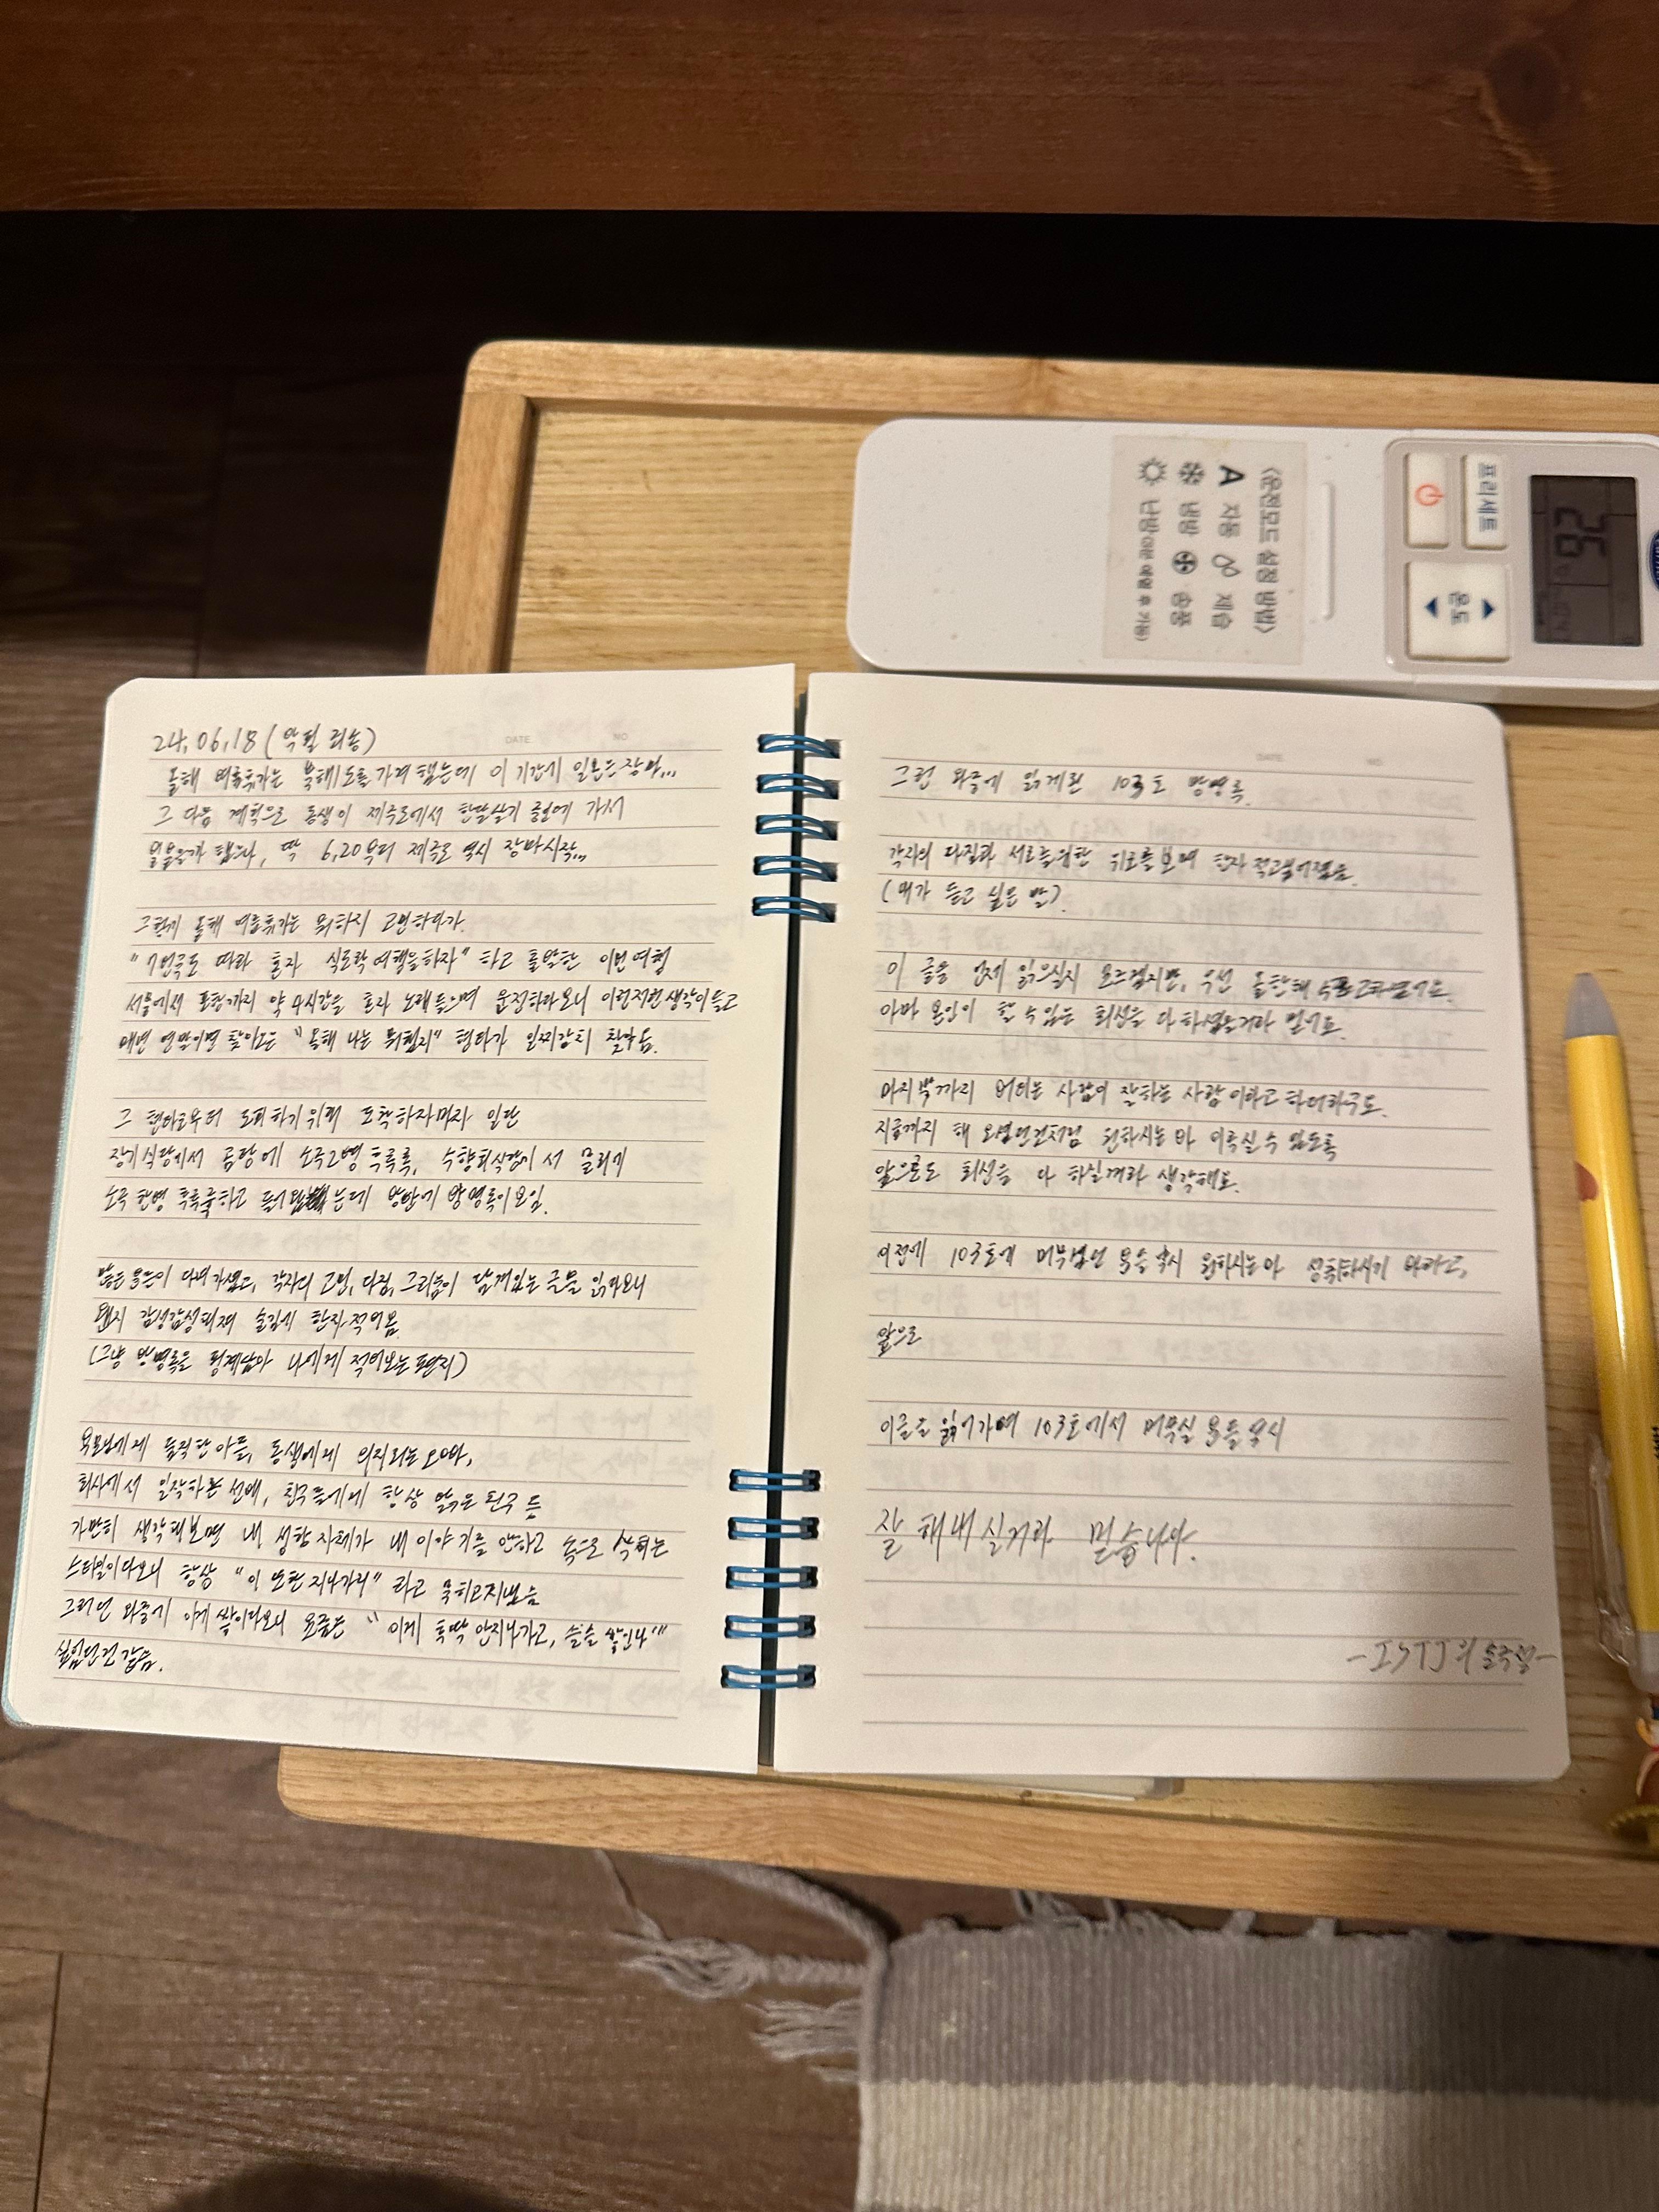 <운전모드 설정 방법>
A 자동 제습
냉방 송풍
난방(이면 예열 후 가동)
프리세트
온도
26
24.06.18 (악필 죄송)
DATE NO
올해 여름휴가는 북해도를 가려 했는데 이 기간에 일본은 장마...
그 다음 계획으로 동생이 제주도에서 한달살기 중이에 가서
할까 했으나, 딱 6.20부터 제주도 역시 장마시작...
그렇게 올해 여름휴가는 뭐하지 고민하다가.
"7번국도 따라 혼자 식도락여행을하자" 하고 출발한 이번여행
서울에서 포항까지 약 4시간을 혼자 노래들으며 운전하다보니 이런저런생각이들고
매년 연말이면 찾아오는 "올해 나는 뭐했지" 현타가 일찌감치 찾아옴.
그 현타로부터 도피하기위해 도착하자마자 일단
장기식당에서 곰탕에 소주2병 후루룩, 수향회식당에서 물회에
소주 한병 후루룩하고 들어왔는데 방안에 방명록이보임.
많은 분들이 다녀가셨고, 각자의 고민, 다짐, 그리움이 담겨있는 글들을 읽다보니
왠지 감성감성해져 술김에 한자적어봄.
(그냥 방명록을 핑계삼아 나에게 적어보는편지)
부모님에게 듬직한 아들, 동생에게 의지되는오빠,
회사에서 일잘하는 선배, 친구들에게 항상 밝은 친구 등
가만히 생각해보면 내 성향 자체가 내 이야기를 안하고 속으로 삭히는
스타일이다보니 항상 "이 또한 지나가리" 라고 묵히고지냈음
그러던 와중에 이게 쌓이다보니 요즘은 "이게 후딱 안지나가고, 슬슬 쌓인다"
싶었던것 같음.
DATE NO
그런 와중에 읽게된 103호 방명록.
각자의 다짐과 서로를위한 위로를보며 한자 적고싶어졌음.
(내가 듣고 싶은 말)
이 글을 언제 읽으실지 모르겠지만, 우선 올한해 수고하셨어요.
아마 본인이 할 수 있는 최선을 다하셨을거라 믿어요.
마지막까지 버티는 사람이 잘하는 사람이라고 하더라구요.
지금까지 해 오셨던것처럼 원하시는 바 이루실 수 있도록
앞으로도 최선을 다 하실거라 생각해요.
이전에 103호에 머무셨던 분들 역시 원하시는바 성취하시기 바라고,
앞으로
이글을 읽어가며 103호에서 머무실 분들 역시
잘 해내실거라 믿습니다.
-ISTJ의 술주정-